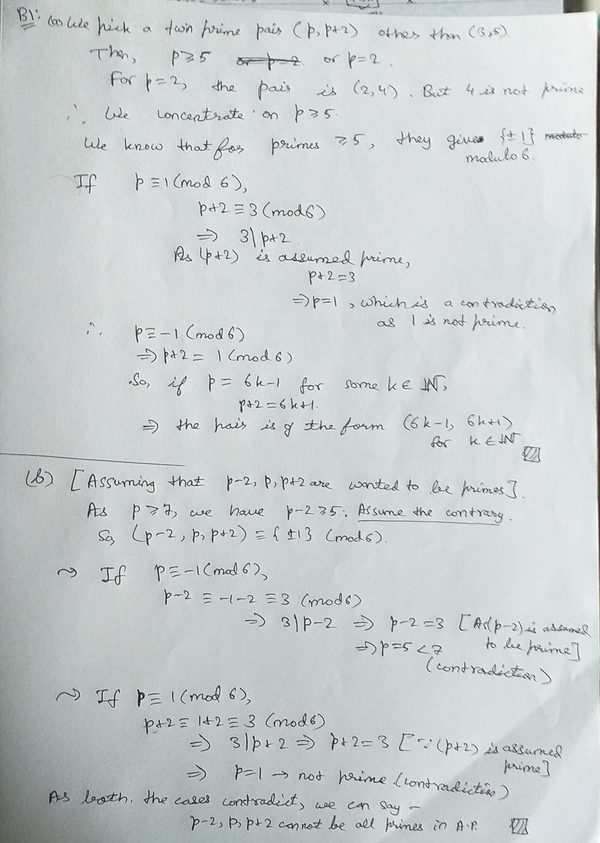 B1: (a) We pick a twin prime pair (p, p+2) other than (3,5).
Then, p≥5 or p=2.
For p=2, the pair is (2,4). But 4 is not prime.
∴ We concentrate on p≥5.
We know that for primes ≥5, they give {±1}
modulo 6.
If p≡1(mod 6),
p+2≡3(mod 6)
⇒ 3|p+2.
As (p+2) is assumed prime,
p+2=3
⇒p=1, which is a contradiction
as 1 is not prime.
∴ p≡-1(mod 6)
⇒p+2≡ 1(mod 6)
So, if p = 6k-1 for some k∈ℕ,
p+2=6k+1.
⇒ the pair is of the form (6k-1, 6k+1)
for k∈ℕ
(b) [Assuming that p-2, p, p+2 are wanted to be primes].
As p≥7, we have p-2≥5. Assume the contrary.
So, (p-2, p, p+2)≡{±1} (mod 6).
~> If p≡-1(mod 6),
p-2 ≡ -1-2 ≡3 (mod 6)
⇒ 3|p-2 ⇒ p-2=3 [As (p-2) is assumed
to be prime]
⇒p=5<7
(contradiction)
~> If p≡1(mod 6),
p+2≡1+2≡3 (mod 6)
⇒ 3|p+2 ⇒ p+2=3 [∵(p+2) is assumed
prime]
⇒ p=1 → not prime (contradiction)
As both the cases contradict, we can say –
p-2, p, p+2 cannot be all primes in A.P.